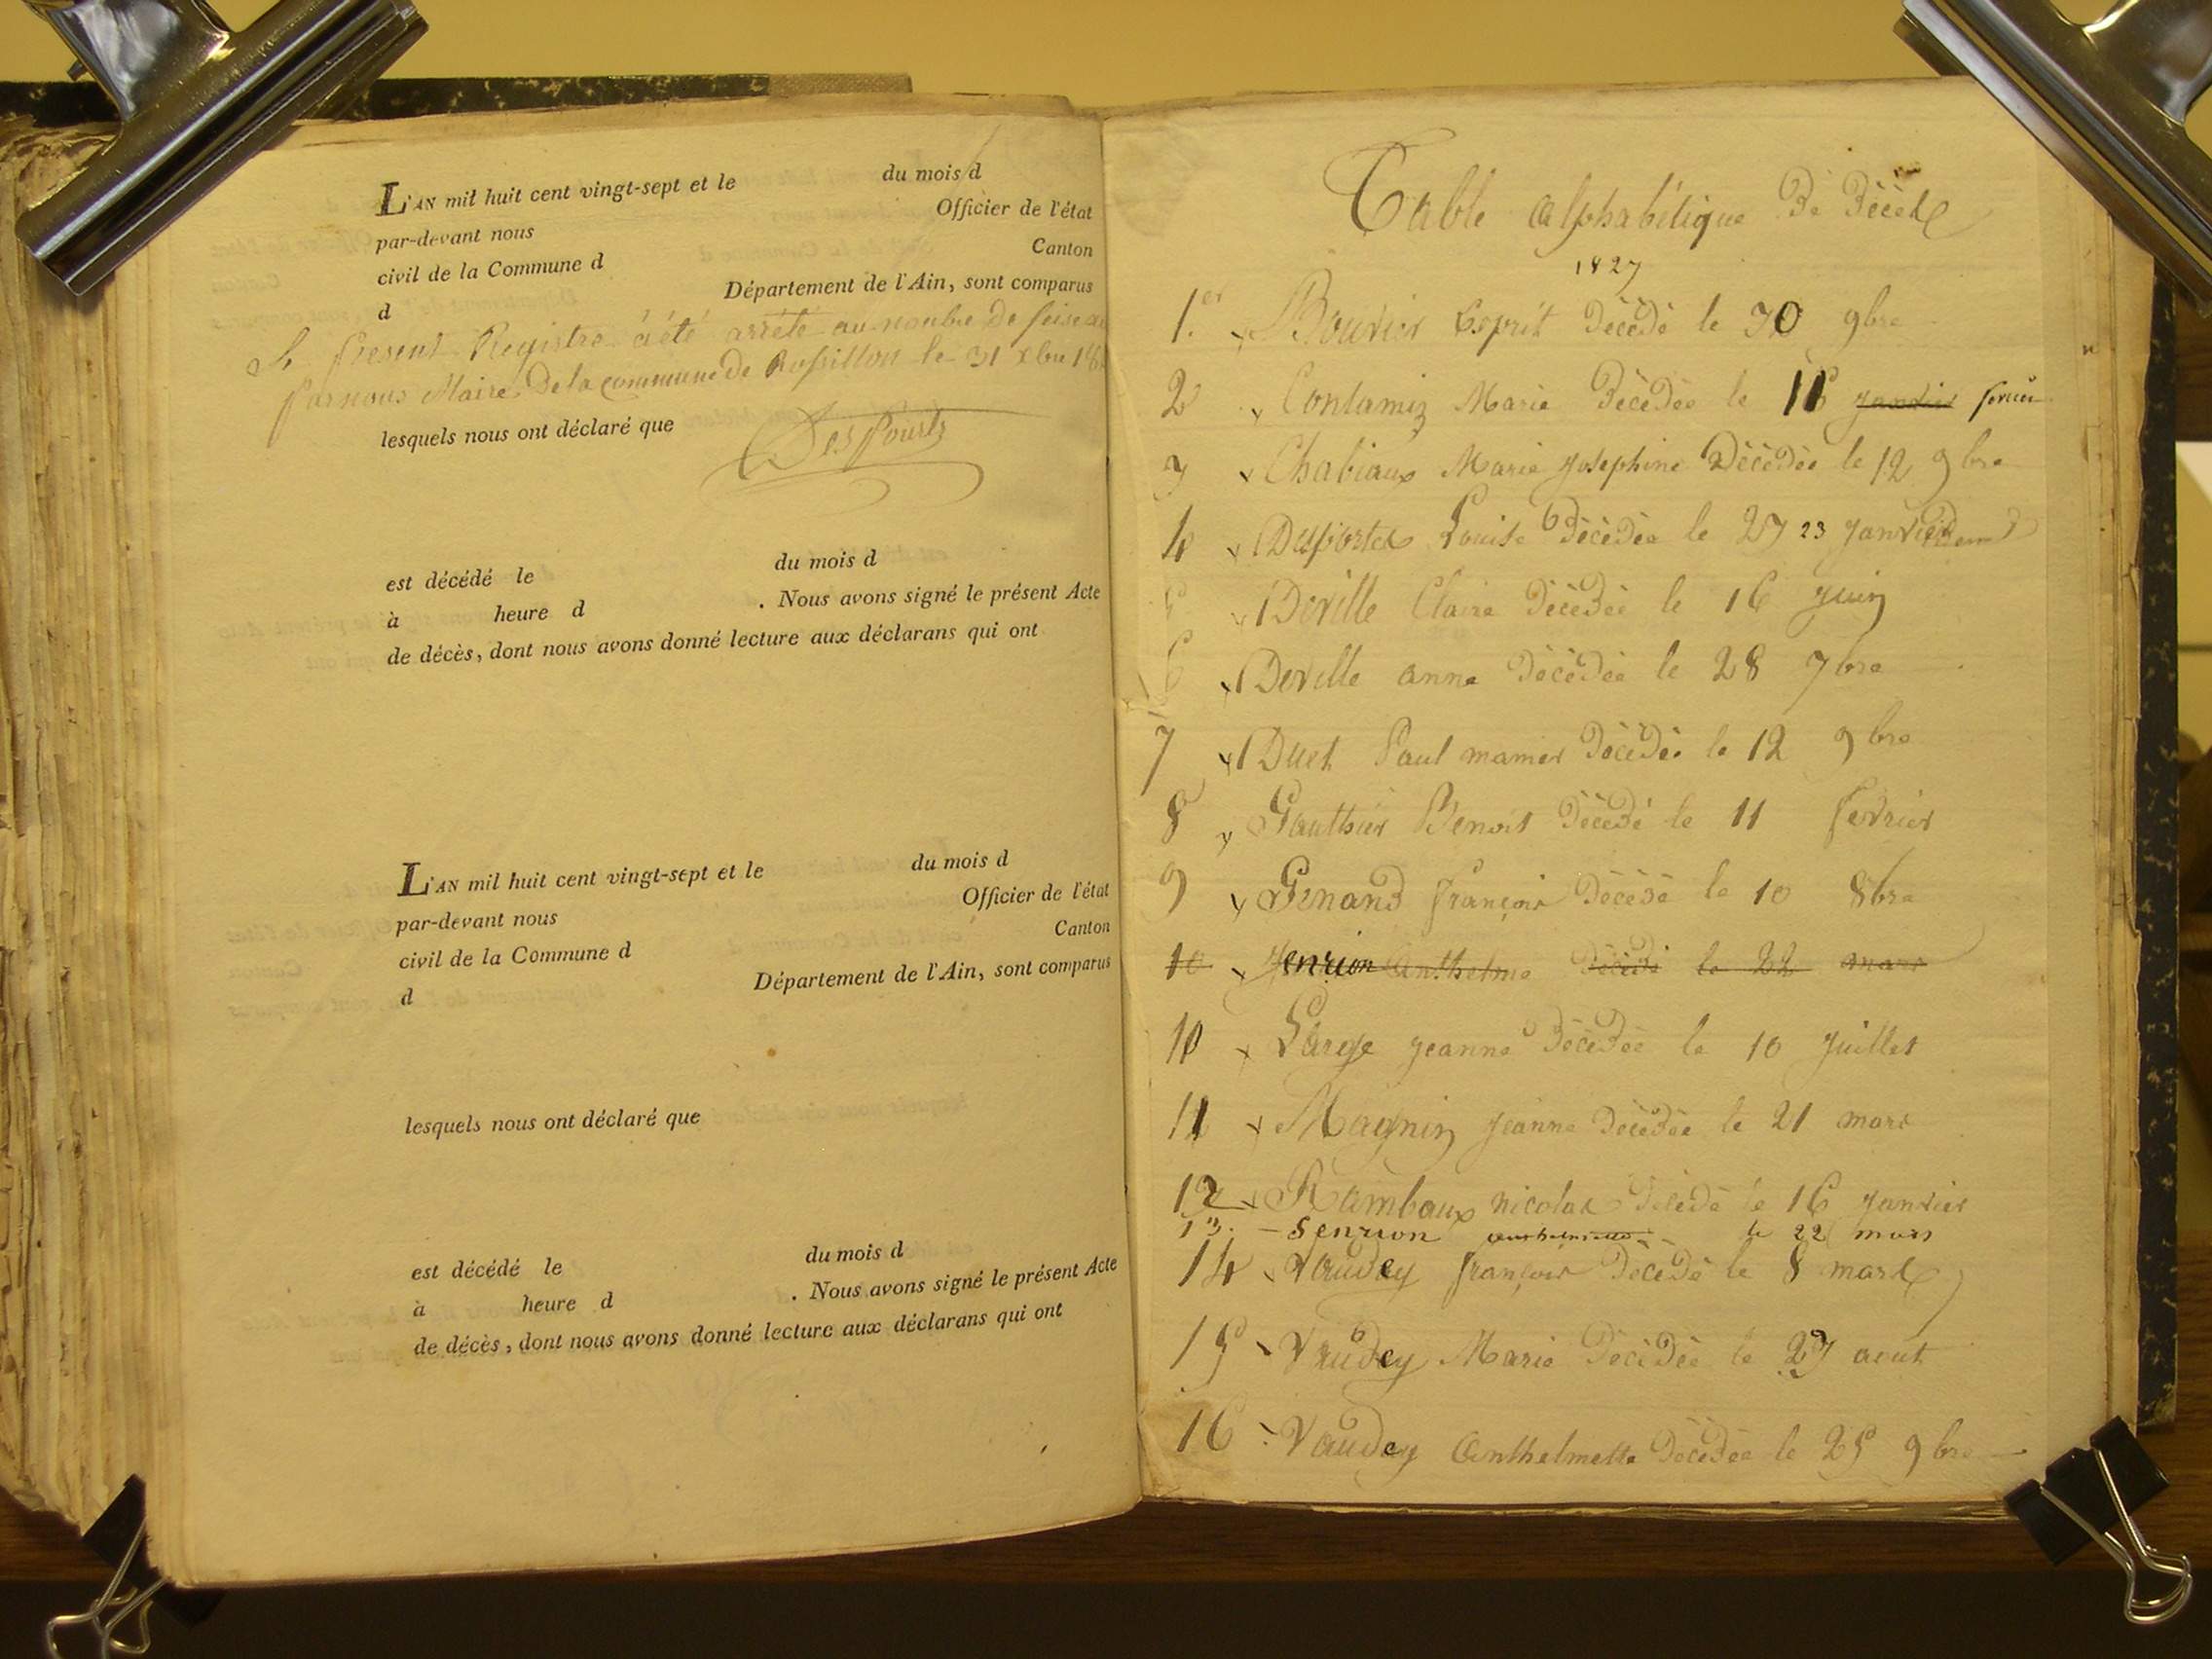 L'AN mil huit cent vingt-sept et le du mois d
par-devant nous Officier de l'état
civil de la Commune d Canton
d Département de l'Ain, sont comparus
Le present Registre a été arrété au nonbre de seise
par nous Maire De la commune de Rossillon le 31 xbre 18
lesquels nous ont déclaré que
est décédé le du mois d
à heure d . Nous avons signé le présent Acte
de décès, dont nous avons donné lecture aux déclarans qui ont
L'AN mil huit cent vingt-sept et le du mois d
par-devant nous Officier de l'état
civil de la Commune d Canton
d Département de l'Ain, sont comparus
lesquels nous ont déclaré que
est décédé le du mois d
à heure d . Nous avons signé le présent Acte
de décès, dont nous avons donné lecture aux déclarans qui ont
Table Alphabétique De Décès
1827
1.er Bouvier Esprit Décédé le 30 9bre
2 Contamin Marie Décédée le janvier fevrier
3 Chabiaux Marie Josephine Décédée le 12 9bre
4 Desportes Louise Décédée le 27 23 Janvier
5 Deville Claire Décédée le 16 Juin
6 Deville anne Décédée le 28 7bre
7 Duet Paul mamer Décédé le 12 9bre
8 Gauthier Benoit Décédé le 11 fevrier
9 Genand françois Décédé le 10 8bre
10 Jenrion Anthelme Décédé le 22 mars
10 Large Jeanne Décédée le 10 Juillet
11 Magnin Jeanne Décédée le 21 mars
12 Rambaux nicolas Décédé le 16 Janvier
13. - Senrion le 22 mars
14 Vaudey françois Décédé le 8 mars
15 Vaudey Marie Décédée le 27 aout
16 Vaudey Anthelmette Décédée le 25 9bre